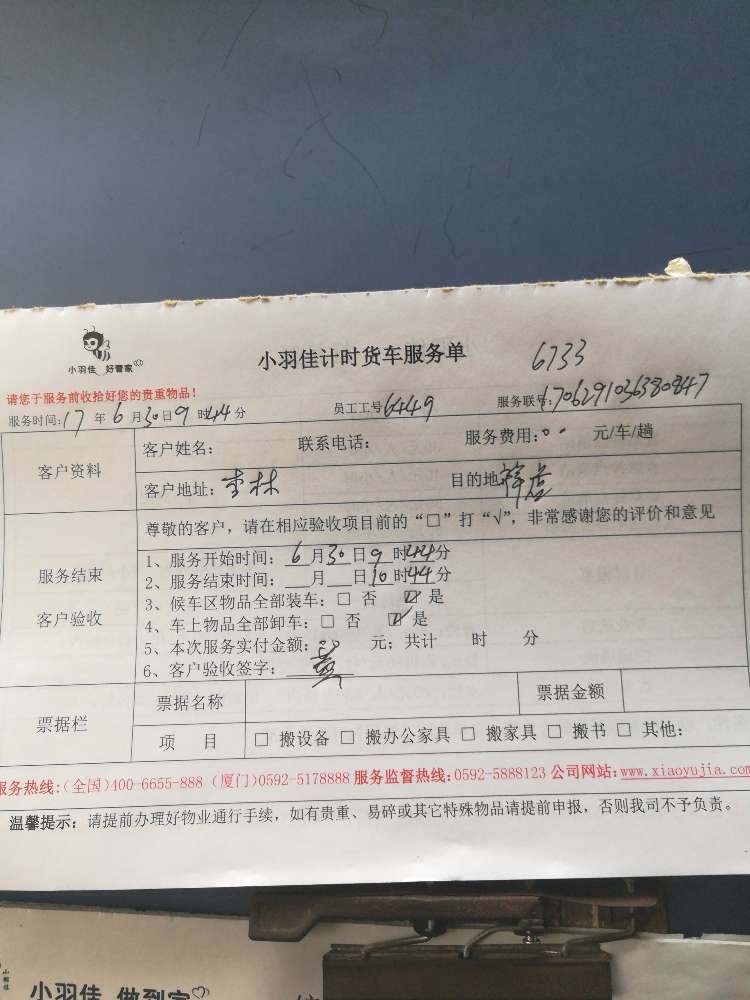 小羽佳 好管家
小羽佳计时货车服务单
6733
请您于服务前收拾好您的贵重物品！
服务时间：17 年 6 月 30 日 9 时 44 分 员工工号 6449 服务联号：
客户资料
客户姓名： 联系电话： 服务费用： 元/车/趟
客户地址：李林 目的地
服务结束
客户验收
尊敬的客户，请在相应验收项目前的“□”打“√”，非常感谢您的评价和意见
1、服务开始时间： 6 月 30 日 9 时 44 分
2、服务结束时间： 月 日 10 时 44 分
3、候车区物品全部装车：□ 否 ☑ 是
4、车上物品全部卸车：□ 否 ☑ 是
5、本次服务实付金额： 元；共计 时 分
6、客户验收签字：
票据栏
票据名称 票据金额
项 目 □ 搬设备 □ 搬办公家具 □ 搬家具 □ 搬书 □ 其他：
服务热线：(全国)400-6655-888 (厦门)0592-5178888 服务监督热线：0592-5888123 公司网站：www.xiaoyujia.com
温馨提示：请提前办理好物业通行手续，如有贵重、易碎或其它特殊物品请提前申报，否则我司不予负责。
小羽佳 做到家